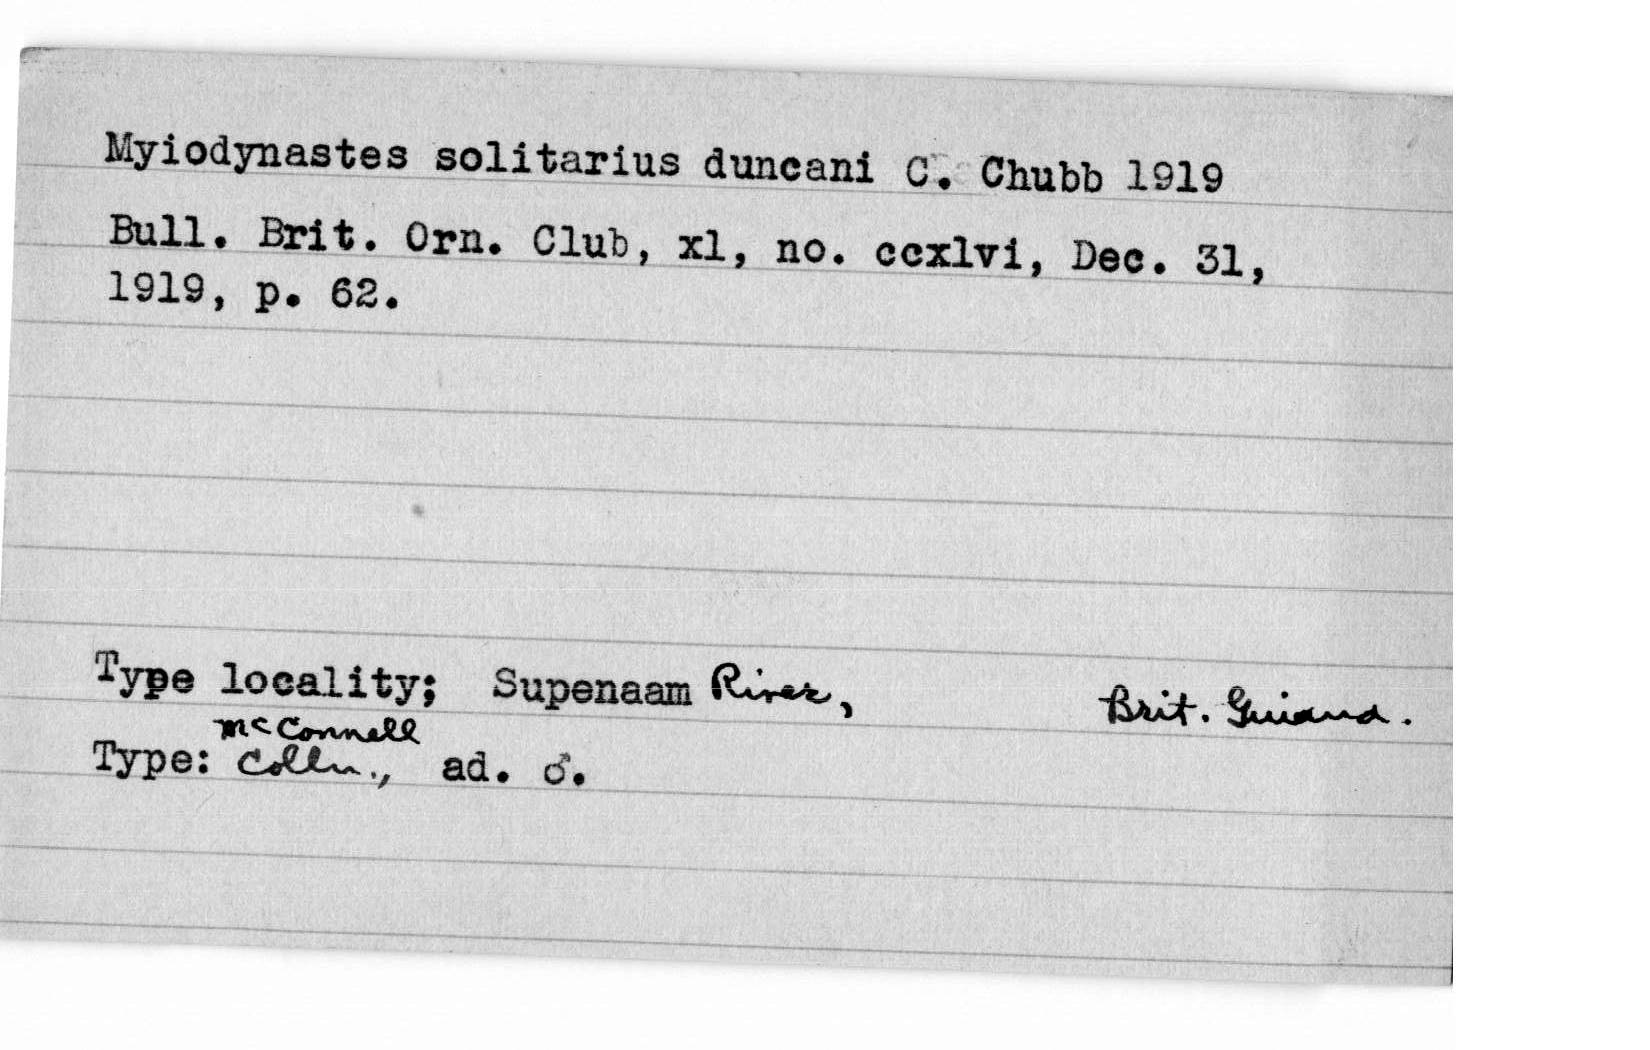 Myiodynastes solitarius duncani C. Chubb 1919
Bull. Brit. Orn. Club, xl, no. ccxlvi, Dec. 31,
1919, p. 62.
Type locality; Supenaam River, Brit. Guiana.
McConnell
Type: Colln., ad. ♂.